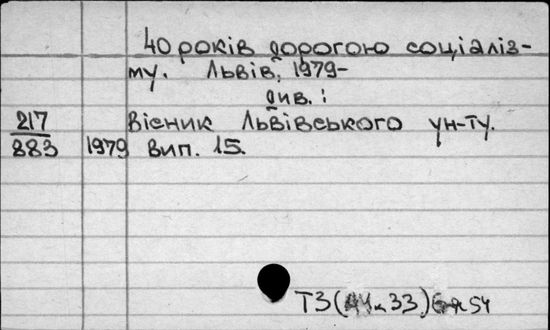 40 років дорогою соціаліз-
му. Львів, 1979-
див.:
217 Вісник Львівського ун-ту.
883 1979 вип. 15.
Т3(
33)